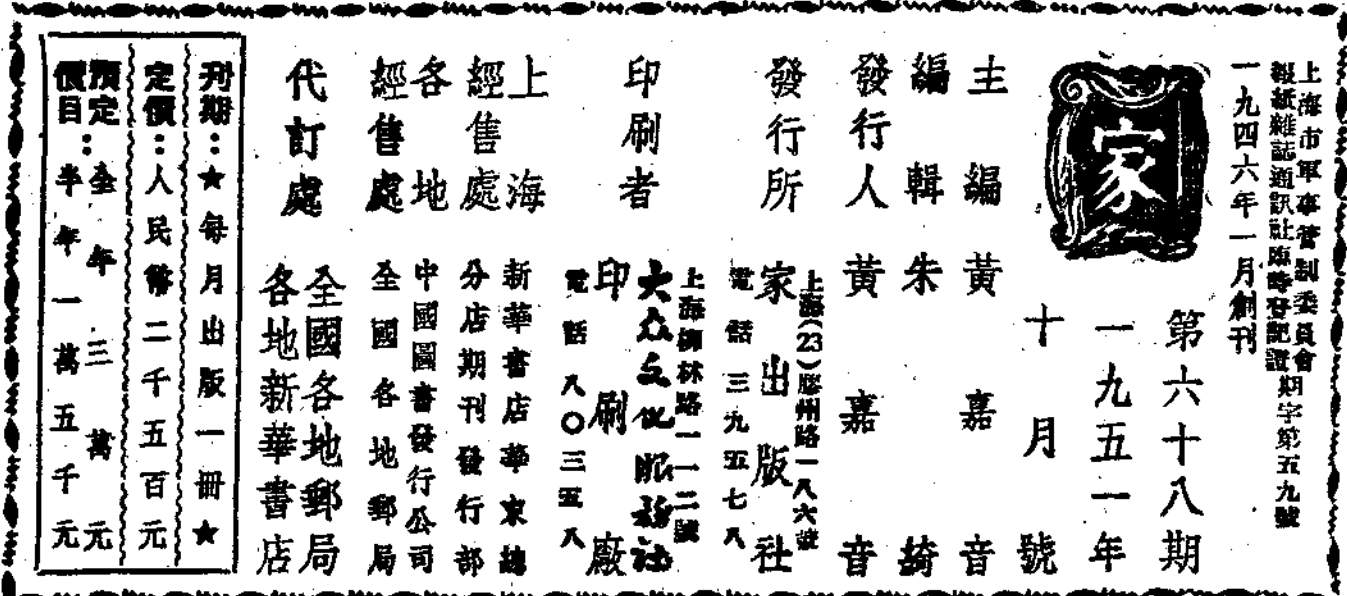 上海市軍事管制委員會
報紙雜誌通訊社臨時登記證期字第五九號
一九四六年一月創刊
家
第六十八期
一九五一年
十月號
主編 黃嘉音
編輯 朱綺
發行人 黃嘉音
發行所 家出版社
上海(23)膠州路一八六號
電話 三九五七八
印刷者 大众文化服務社印刷廠
上海柳林路一一二號
電話 八〇三五八
上海經售處 新華書店華東總分店期刊發行部
各地經售處 中國圖書發行公司
全國各地郵局
代訂處 全國各地郵局
各地新華書店
刊期：★每月出版一冊★
定價：人民幣二千五百元
預定價目：全年三萬元
半年一萬五千元